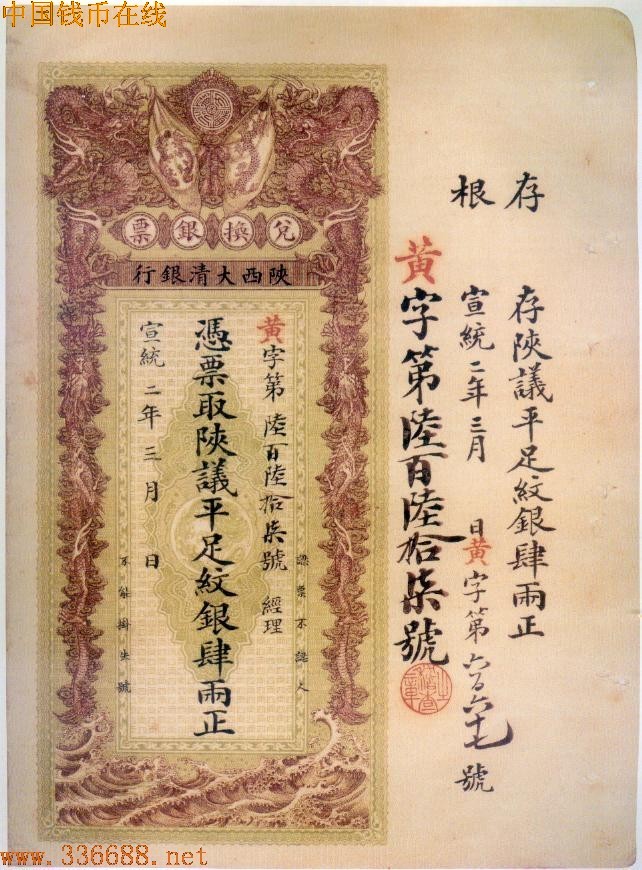 中国钱币在线
存根
存陝議平足紋銀肆兩正
宣統二年三月 日黄字第六百六十七號
黄字第陸百陸拾柒號
兌換銀票
陝西大清銀行
認票不認人
黄字第陸百陸拾柒號 經理
憑票取陝議平足紋銀肆兩正
宣統二年三月 日
不能掛失號
www.336688.net